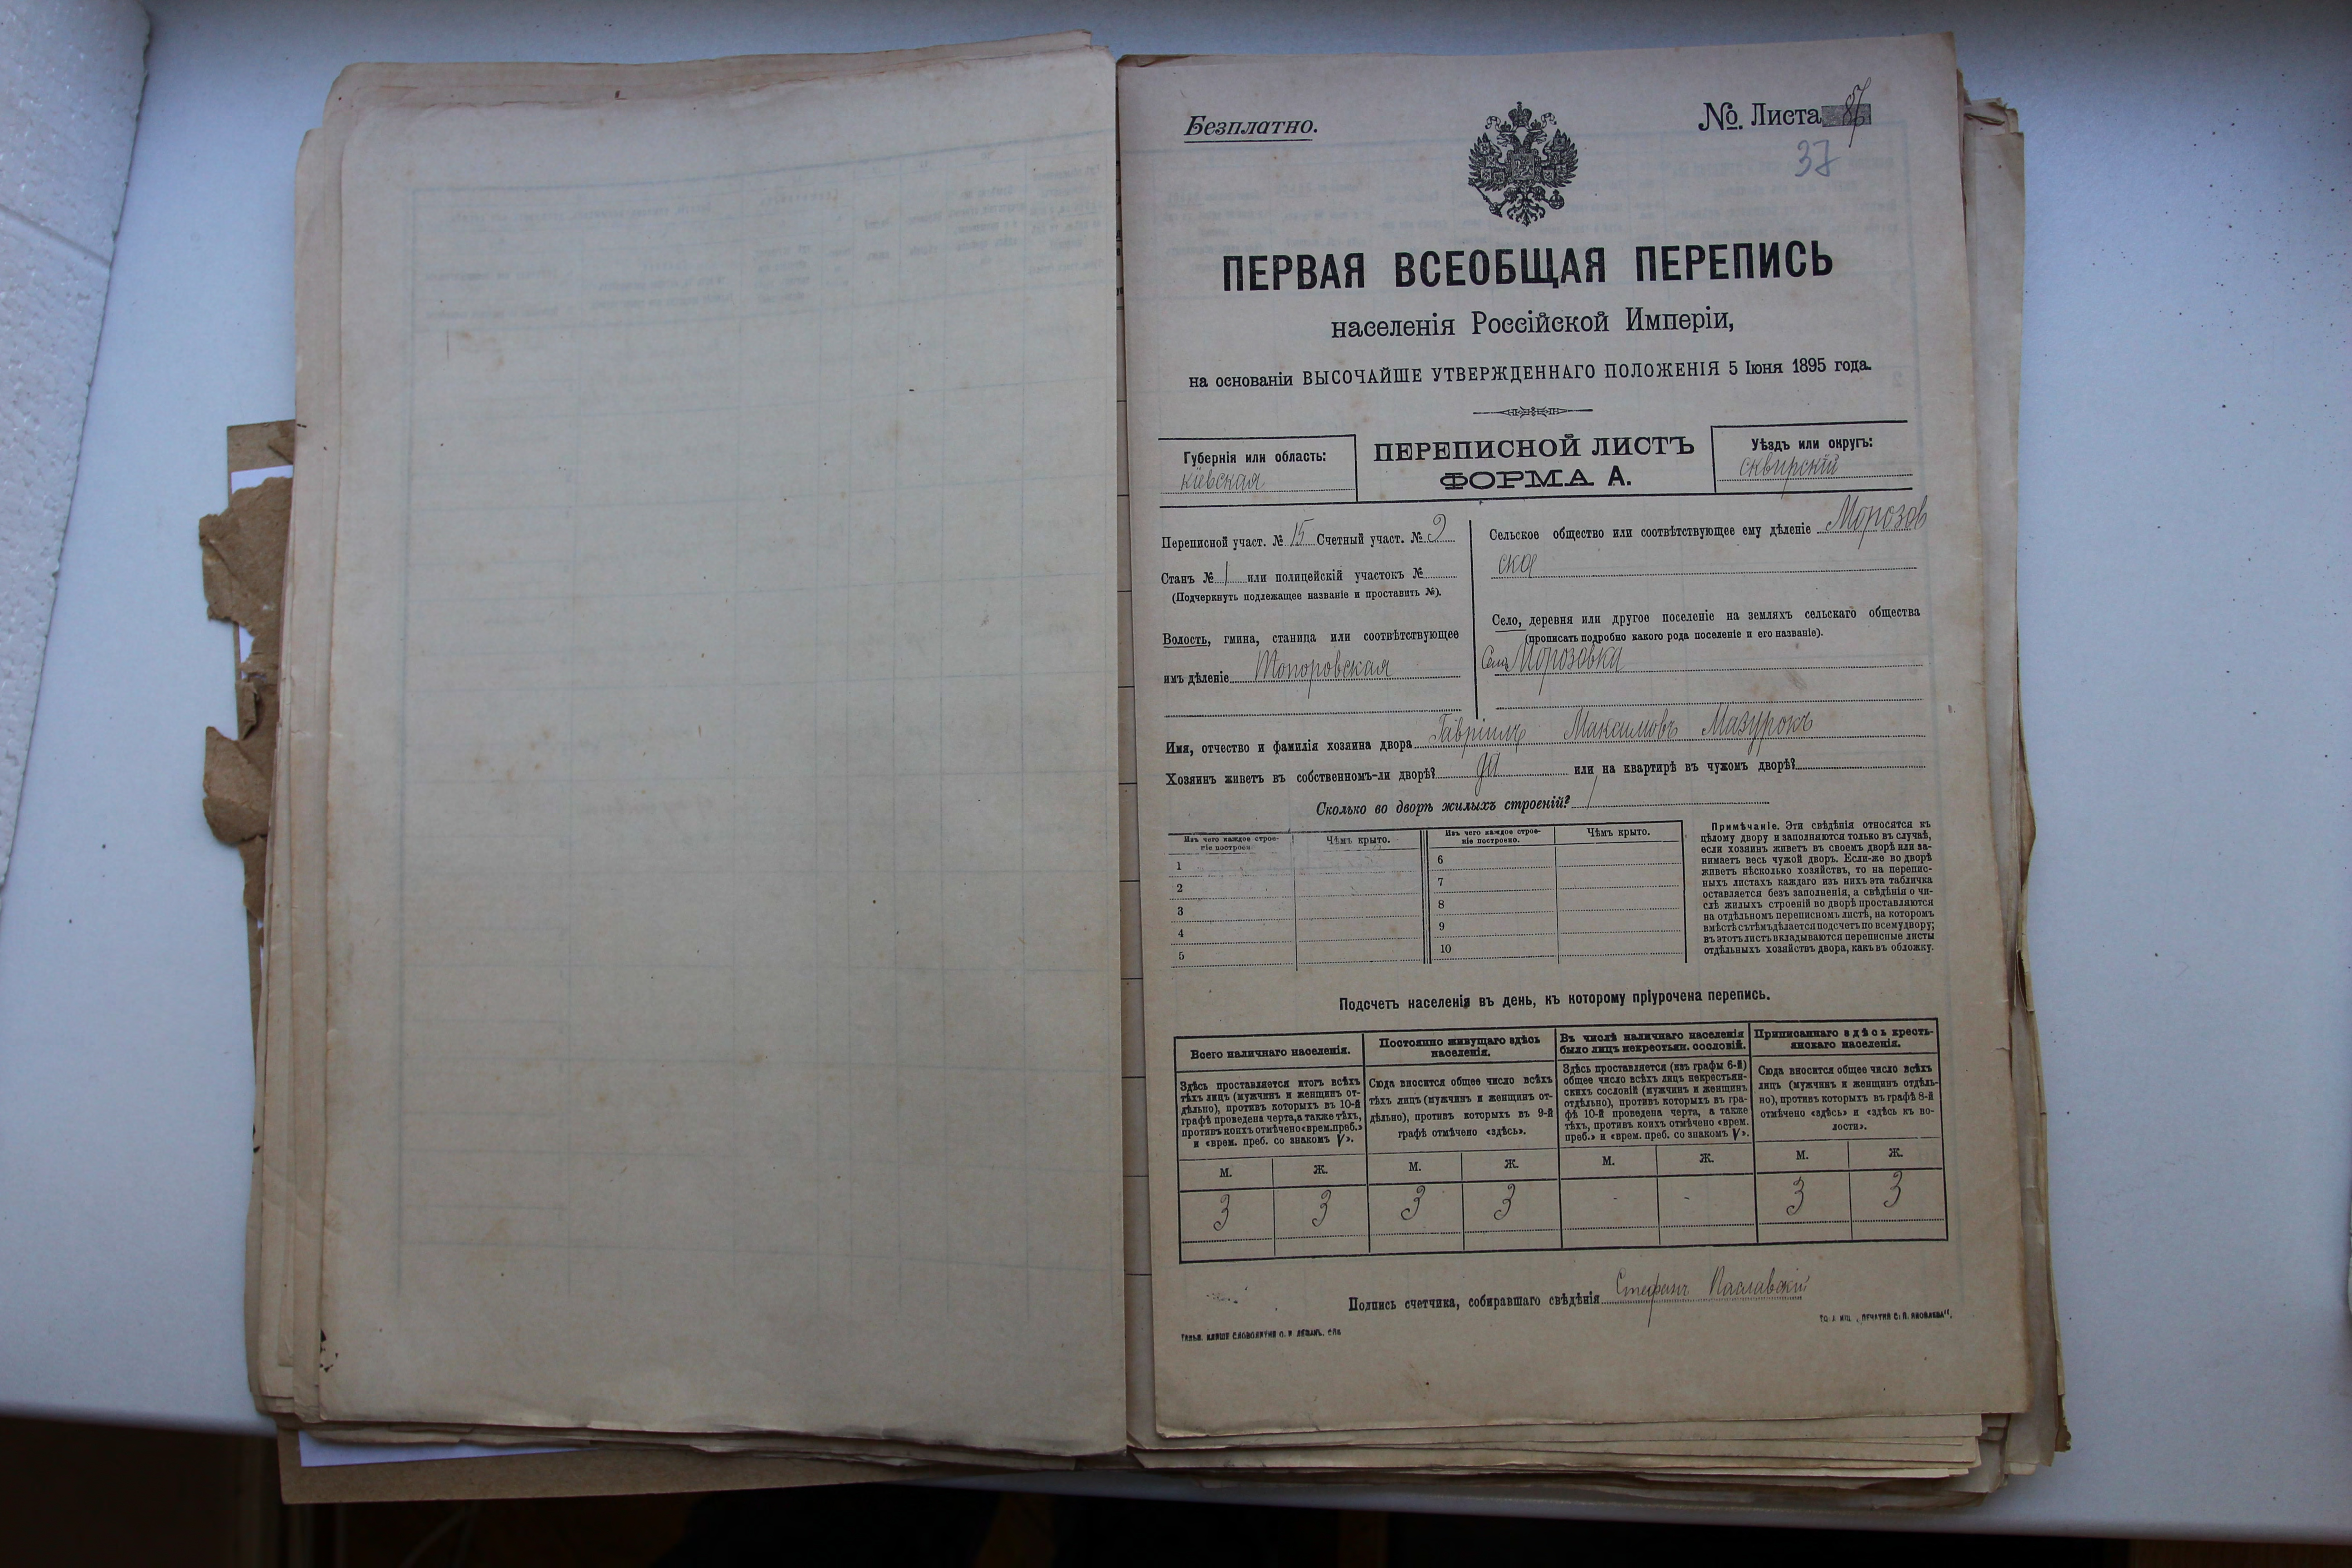 Безплатно.
№. Листа
37
ПЕРВАЯ ВСЕОБЩАЯ ПЕРЕПИСЬ
населенія Россійской Имперіи,
на основаніи ВЫСОЧАЙШЕ УТВЕРЖДЕННАГО ПОЛОЖЕНІЯ 5 Іюня 1895 года.
Губернія или область:
кіевская
ПЕРЕПИСНОЙ ЛИСТЪ
ФОРМА А.
Уѣздъ или округъ:
сквирскій
Переписной участ. № 15 Счетный участ. № 2
Станъ № 1 или полицейскій участокъ №
(Подчеркнуть подлежащее названіе и проставить №).
Волость, гмина, станица или соотвѣтствующее
имъ дѣленіе Топоровская
Сельское общество или соотвѣтствующее ему дѣленіе Морозов
ска
Село, деревня или другое поселеніе на земляхъ сельскаго общества
(прописать подробно какого рода поселеніе и его названіе).
Село Морозовка
Имя, отчество и фамилія хозяина двора Гавріилъ Максимовъ Мазурокъ
Хозяинъ живетъ въ собственномъ-ли дворѣ? да или на квартирѣ въ чужомъ дворѣ?
Сколько во дворѣ жилыхъ строеній? 1
Изъ чего каждое строе-
ніе построено.
Чѣмъ крыто.
Изъ чего каждое строе-
ніе построено.
Чѣмъ крыто.
1
2
3
4
5
6
7
8
9
10
Примѣчаніе. Эти свѣдѣнія относятся къ
цѣлому двору и заполняются только въ случаѣ,
если хозяинъ живетъ въ своемъ дворѣ или за-
нимаетъ весь чужой дворъ. Если-же во дворѣ
живетъ нѣсколько хозяйствъ, то на перепис-
ныхъ листахъ каждаго изъ нихъ эта табличка
оставляется безъ заполненія, а свѣдѣнія о чи-
слѣ жилыхъ строеній во дворѣ проставляются
на отдѣльномъ переписномъ листѣ, на которомъ
вмѣстѣ съ тѣмъ дѣлается подсчетъ по всему двору;
въ этотъ листъ вкладываются переписные листы
отдѣльныхъ хозяйствъ двора, какъ въ обложку.
Подсчетъ населенія въ день, къ которому пріурочена перепись.
Всего наличнаго населенія.
Здѣсь проставляется итогъ всѣхъ
тѣхъ лицъ (мужчинъ и женщинъ от-
дѣльно), противъ которыхъ въ 10-й
графѣ проведена черта, а также тѣхъ,
противъ коихъ отмѣчено «врем. преб.»
и «врем. преб. со знакомъ V».
Постоянно живущаго здѣсь
населенія.
Сюда вносится общее число всѣхъ
тѣхъ лицъ (мужчинъ и женщинъ от-
дѣльно), противъ которыхъ въ 9-й
графѣ отмѣчено «здѣсь».
Въ числѣ наличнаго населенія
было лицъ некрестьян. сословій.
Здѣсь проставляется (изъ графы 6-й)
общее число всѣхъ лицъ некрестьян-
скихъ сословій (мужчинъ и женщинъ
отдѣльно), противъ которыхъ въ гра-
фѣ 10-й проведена черта, а также
тѣхъ, противъ коихъ отмѣчено «врем.
преб.» и «врем. преб. со знакомъ V».
Приписаннаго здѣсь кресть-
янскаго населенія.
Сюда вносится общее число всѣхъ
лицъ (мужчинъ и женщинъ отдѣль-
но), противъ которыхъ въ графѣ 8-й
отмѣчено «здѣсь» и «здѣсь къ во-
лости».
М. Ж. М. Ж. М. Ж. М. Ж.
3 3 3 3 - - 3 3
Подпись счетчика, собиравшаго свѣдѣнія Стефанъ Паславскій